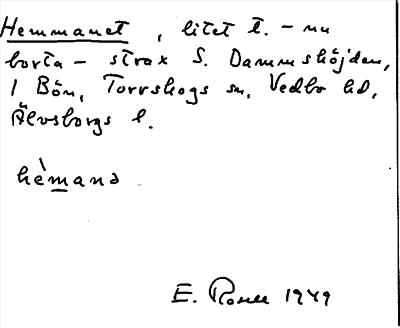 Hemmanet, litet t. – nu
borta – strax S. Dammshöjden,
1 Bön, Torrskogs sn, Vedbo hd,
Älvsborgs l.
hèmanə
E. Rosell 1949